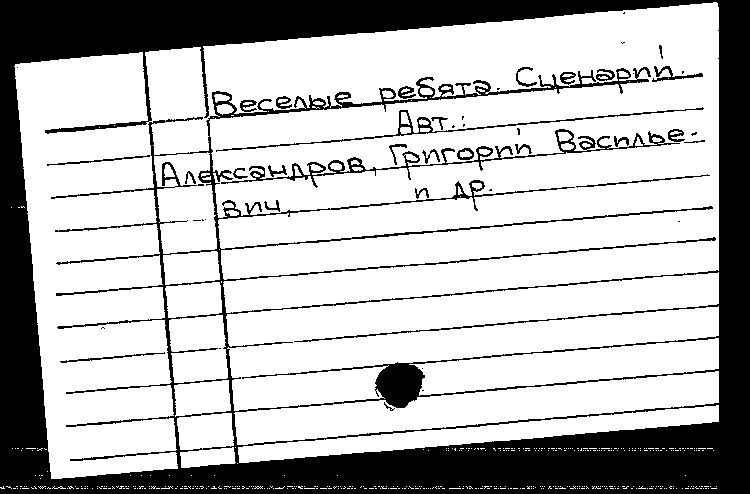 Веселые ребята. Сценарий.
Авт.:
Александров, Григорий Василье-
вич, и др.